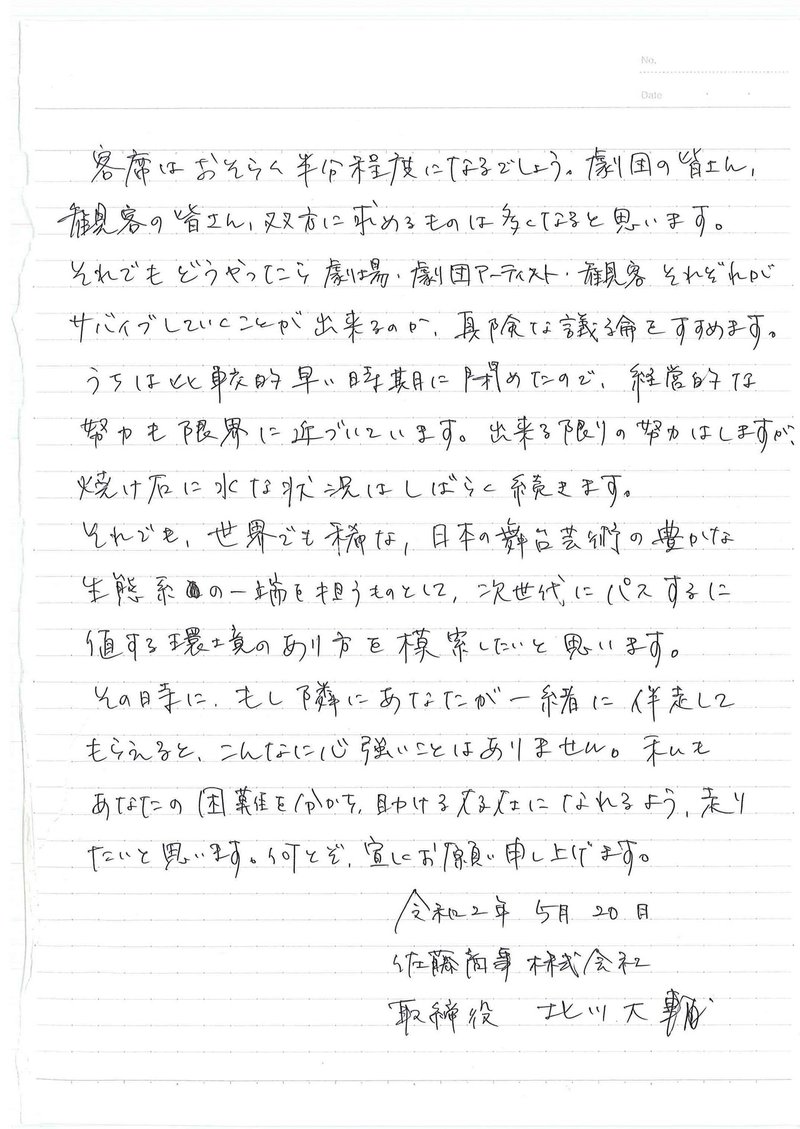 No.
Date
客席はおそらく半分程度になるでしょう。劇団の皆さん、
観客の皆さん、双方に求めるものは多くなると思います。
それでもどうやったら劇場・劇団アーティスト・観客 それぞれが
サバイブしていくことが出来るのか、真険な議論をすすめます。
うちは比較的早い時期に閉めたので、経営的な
努力も限界に近づいています。出来る限りの努力はしますが、
焼け石に水な状況はしばらく続きます。
それでも、世界でも稀な、日本の舞台芸術の豊かな
生態系の一端を担うものとして、次世代にパスするに
値する環境のあり方を模索したいと思います。
その時に、もし隣にあなたが一緒に伴走して
もらえると、こんなに心強いことはありません。私も
あなたの困難を分かち、助ける存在になれるよう、走り
たいと思います。何とぞ、宜しくお願い申し上げます。
令和2年 5月 20日
佐藤商事 株式会社
取締役 北川大輔